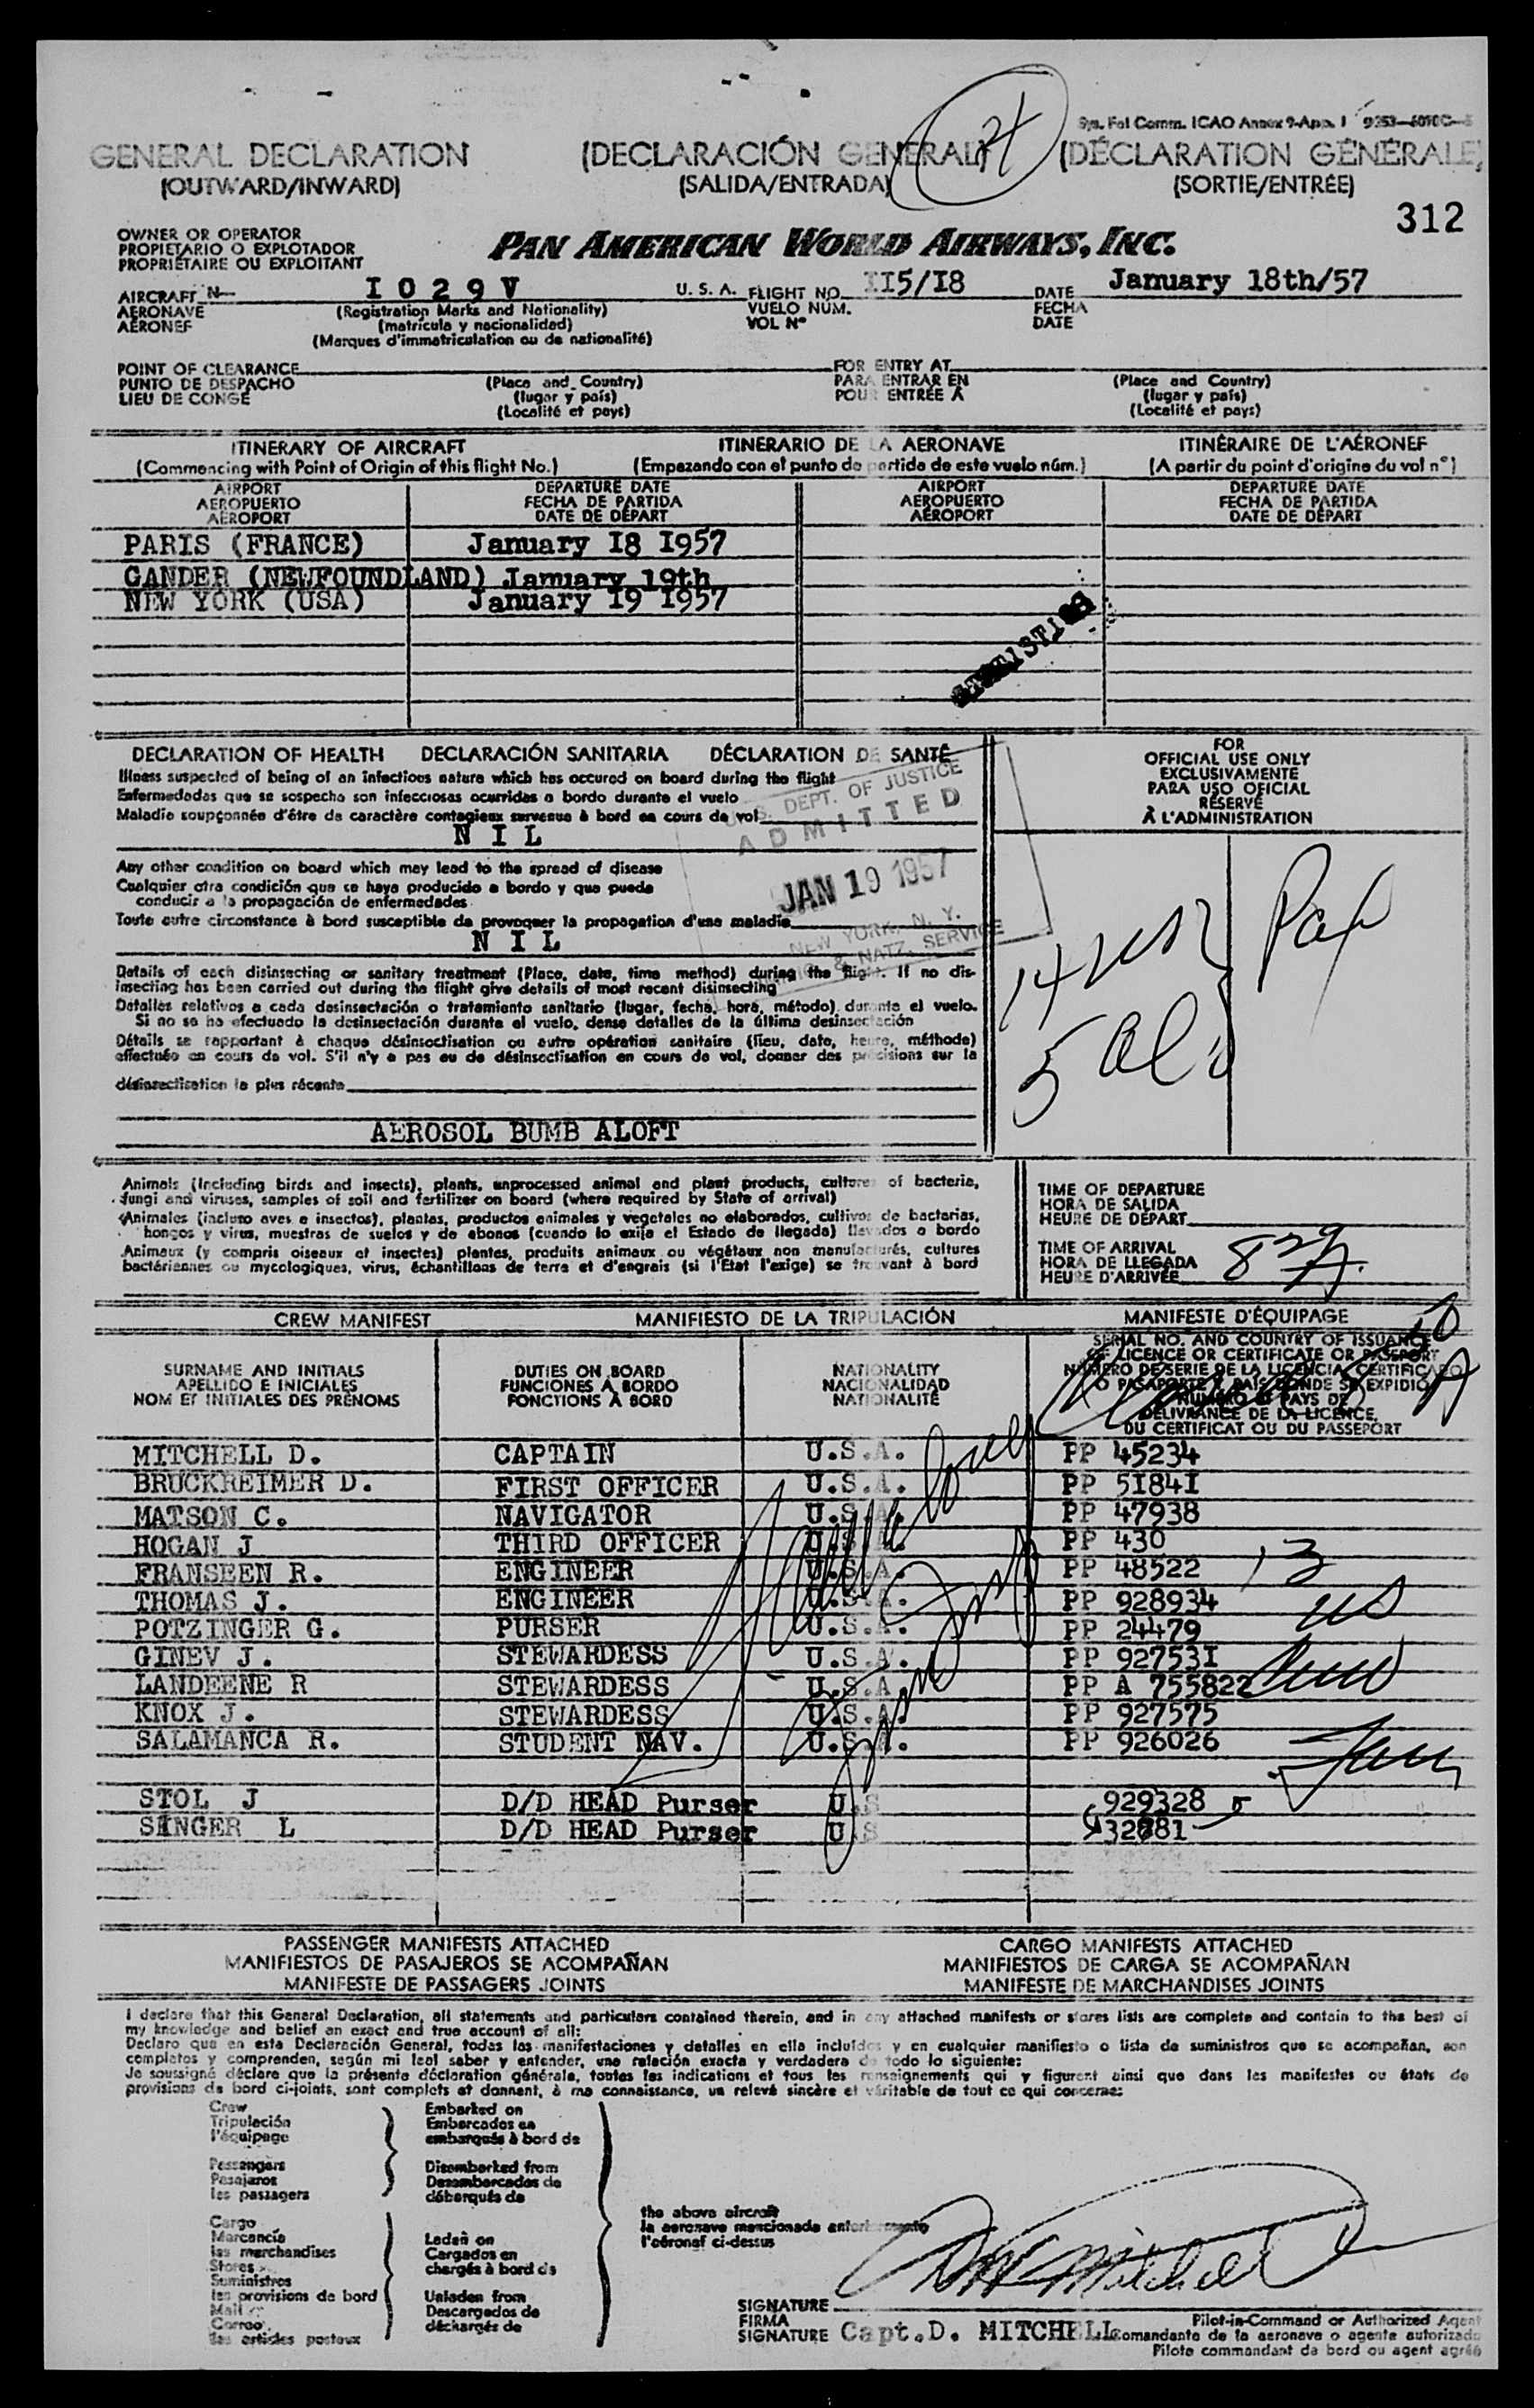 Sys. Fol Comm. ICAO Annex 9-App. 1 9353-6010C-
GENERAL DECLARATION (DECLARACIÓN GENERAL) (DÉCLARATION GÉNÉRALE)
(OUTWARD/INWARD) (SALIDA/ENTRADA) (SORTIE/ENTRÉE)
312
OWNER OR OPERATOR
PROPIETARIO O EXPLOTADOR
PROPRIÉTAIRE OU EXPLOITANT
PAN AMERICAN WORLD AIRWAYS, INC.
AIRCRAFT N- I 0 2 9 V U. S. A. FLIGHT NO. II5/I8 DATE January 18th/57
AERONAVE (Registration Marks and Nationality) VUELO NÚM. FECHA
AÉRONEF (matrícula y nacionalidad) VOL N° DATE
(Marques d'immatriculation ou de nationalité)
POINT OF CLEARANCE FOR ENTRY AT
PUNTO DE DESPACHO (Place and Country) PARA ENTRAR EN (Place and Country)
LIEU DE CONGÉ (lugar y país) POUR ENTRÉE À (lugar y país)
(Localité et pays) (Localité et pays)
ITINERARY OF AIRCRAFT ITINERARIO DE LA AERONAVE ITINÉRAIRE DE L'AÉRONEF
(Commencing with Point of Origin of this flight No.) (Empezando con el punto de partida de este vuelo núm.) (A partir du point d'origine du vol n°)
AIRPORT DEPARTURE DATE AIRPORT DEPARTURE DATE
AEROPUERTO FECHA DE PARTIDA AEROPUERTO FECHA DE PARTIDA
AÉROPORT DATE DE DÉPART AÉROPORT DATE DE DÉPART
PARIS (FRANCE) January I8 I957
GANDER (NEWFOUNDLAND) January 19th
NEW YORK (USA) January I9 I957
STATISTICS
DECLARATION OF HEALTH DECLARACIÓN SANITARIA DÉCLARATION DE SANTÉ
Illness suspected of being of an infectious nature which has occured on board during the flight
Enfermedades que se sospecha son infecciosas ocurridas a bordo durante el vuelo
Maladie soupçonnée d'être de caractère contagieux survenue à bord en cours de vol
N I L
Any other condition on board which may lead to the spread of disease
Cualquier otra condición que se haya producido a bordo y que pueda
conducir a la propagación de enfermedades
Toute autre circonstance à bord susceptible de provoquer la propagation d'une maladie
N I L
U.S. DEPT. OF JUSTICE
ADMITTED
JAN 19 1957
NEW YORK, N. Y.
& NATZ. SERVICE
Details of each disinsecting or sanitary treatment (Place, date, time method) during the flight. If no dis-
insecting has been carried out during the flight give details of most recent disinsecting
Detalles relativos a cada desinsectación o tratamiento sanitario (lugar, fecha, hora, método) durante el vuelo.
Si no se ha efectuado la desinsectación durante el vuelo, dense detalles de la última desinsectación
Détails se rapportant à chaque désinsectisation ou autre opération sanitaire (lieu, date, heure, méthode)
effectuée en cours de vol. S'il n'y a pas eu de désinsectisation en cours de vol, donner des précisions sur la
désinsectisation la plus récente
AEROSOL BUMB ALOFT
FOR
OFFICIAL USE ONLY
EXCLUSIVAMENTE
PARA USO OFICIAL
RÉSERVÉ
À L'ADMINISTRATION
14 USA
5 Al
Animals (Including birds and insects), plants, unprocessed animal and plant products, cultures of bacteria,
fungi and viruses, samples of soil and fertilizer on board (where required by State of arrival)
Animales (incluso aves e insectos), plantas, productos animales y vegetales no elaborados, cultivos de bacterias,
hongos y virus, muestras de suelos y de abonos (cuando lo exija el Estado de llegada) llevados a bordo
Animaux (y compris oiseaux et insectes) plantes, produits animaux ou végétaux non manufacturés, cultures
bactériennes ou mycologiques, virus, échantillons de terre et d'engrais (si l'Etat l'exige) se trouvant à bord
TIME OF DEPARTURE
HORA DE SALIDA
HEURE DE DÉPART
TIME OF ARRIVAL
HORA DE LLEGADA
HEURE D'ARRIVÉE
CREW MANIFEST MANIFIESTO DE LA TRIPULACIÓN MANIFESTE D'ÉQUIPAGE
SURNAME AND INITIALS DUTIES ON BOARD NATIONALITY
APELLIDO E INICIALES FUNCIONES A BORDO NACIONALIDAD
NOM ET INITIALES DES PRÉNOMS FONCTIONS À BORD NATIONALITÉ
SERIAL NO. AND COUNTRY OF ISSUANCE
OF LICENCE OR CERTIFICATE OR PASSPORT
NÚMERO DE SERIE DE LA LICENCIA, CERTIFICADO
O PASAPORTE Y PAÍS DONDE SE EXPIDIÓ
NUMÉRO ET PAYS DE
DÉLIVRANCE DE LA LICENCE,
DU CERTIFICAT OU DU PASSEPORT
MITCHELL D. CAPTAIN U.S.A. PP 45234
BRUCKREIMER D. FIRST OFFICER U.S.A. PP 5I84I
MATSON C. NAVIGATOR U.S.A. PP 47938
HOGAN J THIRD OFFICER U.S.A. PP 430
FRANSEEN R. ENGINEER U.S.A. PP 48522
THOMAS J. ENGINEER U.S.A. PP 928934
POTZINGER G. PURSER U.S.A. PP 24479
GINEV J. STEWARDESS U.S.A. PP 92753I
LANDEENE R STEWARDESS U.S.A PP A 755822
KNOX J. STEWARDESS U.S.A. PP 927575
SALAMANCA R. STUDENT NAV. U.S.A. PP 926026
13
us
STOL J D/D HEAD Purser U.S 929328
SINGER L D/D HEAD Purser U S
PASSENGER MANIFESTS ATTACHED CARGO MANIFESTS ATTACHED
MANIFIESTOS DE PASAJEROS SE ACOMPAÑAN MANIFIESTOS DE CARGA SE ACOMPAÑAN
MANIFESTE DE PASSAGERS JOINTS MANIFESTE DE MARCHANDISES JOINTS
I declare that this General Declaration, all statements and particulars contained therein, and in any attached manifests or stores lists are complete and contain to the best of
my knowledge and belief an exact and true account of all:
Declaro que en esta Declaración General, todas las manifestaciones y detalles en ella incluidos y en cualquier manifiesto o lista de suministros que se acompañan, son
completos y comprenden, según mi leal saber y entender, una relación exacta y verdadera de todo lo siguiente:
Je soussigné déclare que la présente déclaration générale, toutes les indications et tous les renseignements qui y figurent ainsi que dans les manifestes ou états de
provisions de bord ci-joints, sont complets et donnent, à ma connaissance, un relevé sincère et véritable de tout ce qui concerne:
Crew Embarked on
Tripulación Embarcados en
l'équipage embarqués à bord de
Passengers Disembarked from
Pasajeros Desembarcados de
les passagers débarqués de
the above aircraft
la aeronave mencionada anteriormente
l'aéronef ci-dessus
Cargo
Marcancía Laden on
les marchandises Cargados en
Stores chargés à bord de
Suministros
les provisions de bord Unladen from
Mail Descargados de
Correo déchargés de
les articles postaux
DW Mitchell
SIGNATURE
FIRMA
SIGNATURE Capt.D. MITCHELL
Pilot-in-Command or Authorized Agent
Comandante de la aeronave o agente autorizado
Pilote commandant de bord ou agent agréé